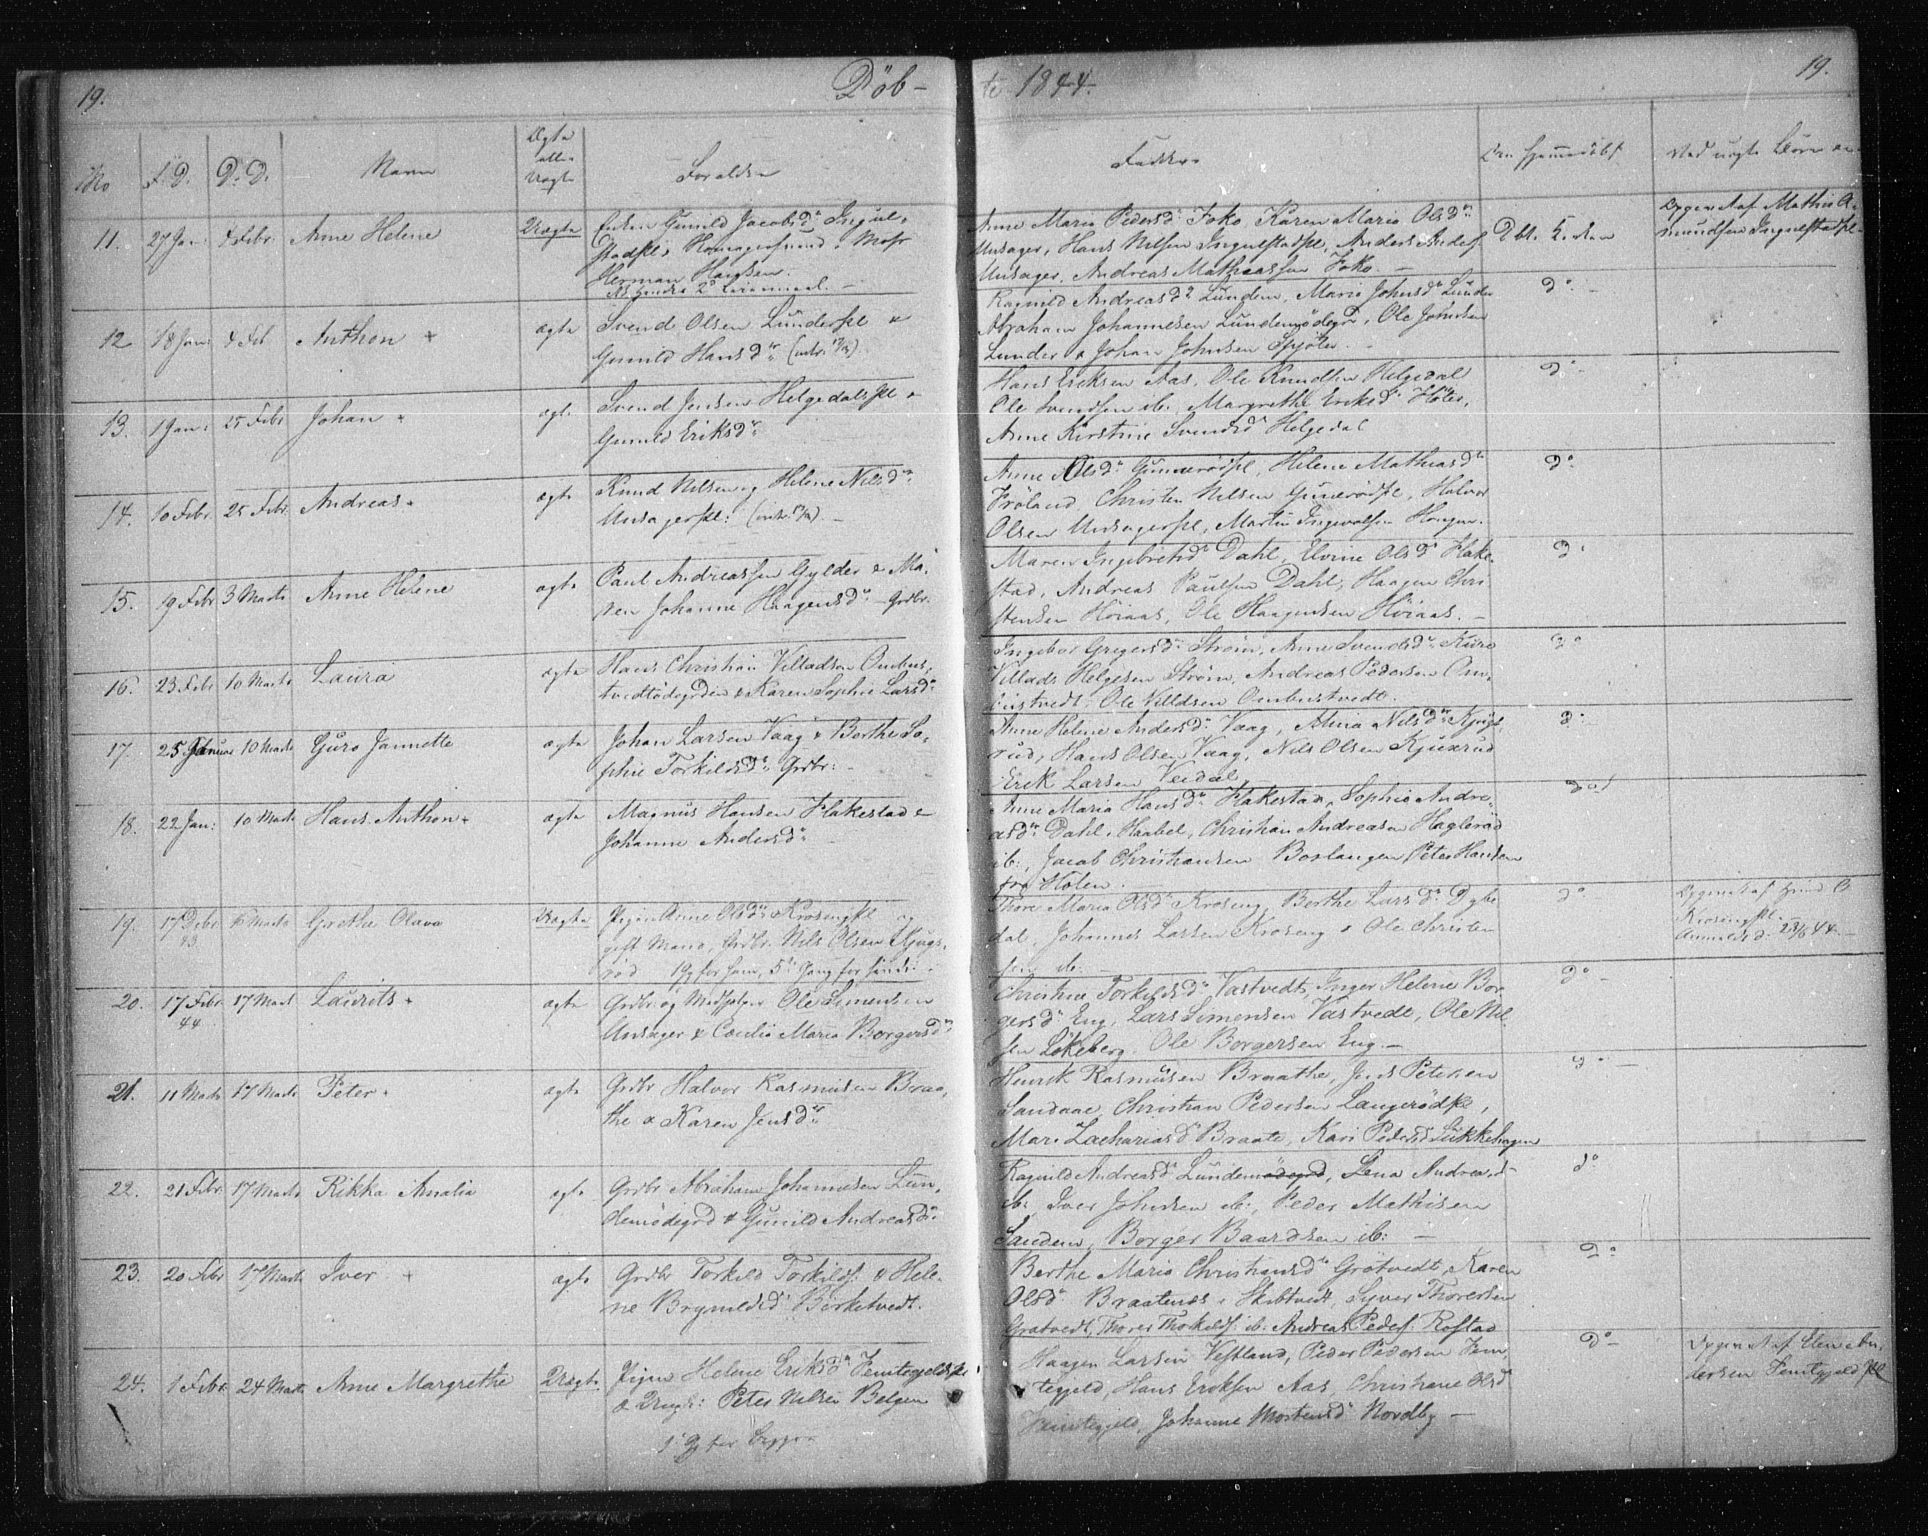 19. Döb-
te 1844. 19.
No F. D. D. D. Navn Ægte eller Uægte Forældre
Faddere Om hjemmedöbt Ved uægte Börn
11. 27 Jan: 4 Febr. Anne Helene Uægte Enken Gunild Jacobsdr Ingul-
stadpl.
Herman Hansen.
Anne Maria Pedersdr Foko Karen Maria Olsdr
Unsager, Hans Nilsen Ingulstadpl, Anders Anders.
Unsager, Andreas Mathiassen Foko. —
Dbt. K.
af Mathis A-
mundsen Ingulstadpl.
12 18 Jan: 4 Feb Anthon + ægte Svend Olsen Lunderpl &
Gunild Hansdr
Ragnild Andreasdr Lunden, Marie Johnsdr Lunder
Abraham Johannesen Lundemödegrd, Ole Johnsen
Lunder & Johan Johnsen Spjöter. —
do —
13. 1 Jan: 25 Febr Johan + ægte Svend Jensen Helgedalspl &
Gunild Eriksdr
Hans Eriksen Aas, Ole Knudsen Helgedal
Ole Svendsen ib. Margrethe Eriksdr Höter,
Anne Kirstine Svendsdr Helgedal
do —
14. 10 Febr. 25 Febr. Andreas + ægte Knud Nilsen og Helene Nilsdr
Unsagerpl: —
Anne Olsdr Gunnerödpl, Helene Mathiasdr
Fröland Christen Nilsen Gunerödpl, Halvor
Olsen Unsagerpl, Martin Ingevalsen Haugen.
do
15. 19 Febr 3 Marts Anne Helene ægte Paul Andreassen Gylder & Ma-
ren Johanne Haagensdr — Grdbr.
Maren Ingebretsdr Dahl, Elvine Olsdr Flake-
stad, Andreas Paulsen Dahl, Haagen Chri-
stensen Höiaas, Ole Haagensen Höiaas. —
do
16. 23 Febr 10 Marts Laura ægte Hans Christian Villadsen Ombus-
tvedtödegrden & Karen Sophie Larsdr
Ingebor Gregersdr Ström, Anne Svendsdr Kure
Villads Helgesen Ström, Andreas Pedersen Om-
bustvedt. Ole Villdsen Ombustvedt.
do
17. 25 Januar 10 Marts Guro Jannette ægte Johan Larsen Vaag & Berthe So-
phie Torkildsdr Grdbr: —
Anne Helene Andersdr Vaag, Anna Nilsdr Kjugs-
rud, Hans Olsen Vaag, Nils Olsen Kjuxrud
Erik Larsen Veidal
do
18. 22 Jan: 10 Marts Hans Anthon + ægte Magnus Hansen Flakestad &
Johanne Andersdr
Anne Maria Hansdr Flakestad, Sophie Andre-
asdr Dahl, Haabel, Christian Andreasen Hagleröd
ib:, Jacob Christiansen Boslangen Peter Hansen
fra Holen.
do
19. 17 Debr 43 Marts Grethe Olava Uægte Pigen Anne Olsdr Krosengpl og
gift Mand, Grdbr. Nils Olsen Kjugs-
röd 19g for ham, 5te Gang for hende
Thore Maria Olsdr Kroseng, Berthe Larsdr Dybe
dal, Johannes Larsen Kroseng & Ole Christen
sen ib.
do
Krosengpl.
Anmeldt d. 23/6 44.
20. 17 Febr 44 17 Marts Laurits + ægte Grdbr og Medhjelper Ole Simensen
Unsager & Cecilia Maria Borgersdr
Christine Torkildsdr Vastvedt, Inger Helene Bor-
gersdr Eng, Lars Simensen Vastvedt, Ole Nil-
sen Lökeberg. Ole Borgersen Eng. —
do —
21. 11 Marts 17 Marts Peter + ægte Grdbr Halvor Rasmusen Braa-
the & Karen Jensdr
Henrik Rasmusen Braathe, Jens Petersen
Sandaae, Christian Pedersen Langerödpl,
Mari Zachariasdr Braate, Kari Pedersd Lükkehagen
do —
22. 21 Febr. 17 Marts Rikka Amalia ægte Grdbr Abraham Johannesen Lun-
demödegrd & Gunild Andreasdr
Ragnild Andreasdr Lundemödegrd, Lena Andreasd
ib. Iver Johnsen ib:, Peder Mathisen
Sanden, Borger Baardsen ib: —
do
23. 20 Febr 17 Marts Iver + ægte Grdbr Torkild Torkilds. & Hele-
ne Brynildsdr Birketvedt.
Berthe Maria Christiansdr Grötvedt, Karen
Olsdr Braatenes i Skibtvedt, Syver Thoresen
Grötvedt, Thores Thorkilds. ib: Andreas Peders. Rostad
do
24. 1 Febr 24 Marts Anne Margrethe Uægte Pigen Helene Eriksdr Femtegjeldspl
& Ungk: Peter Nilsen Belgen
1. Gg for begge
Haagen Larsen Vestland, Peder Pedersen Fem
tegjeld, Hans Eriksen Aas, Christiane Olsdr
Femtegjeld, Johanne Mortensdr Nordby —
do
af Elen An-
dersen Femtegjeldpl